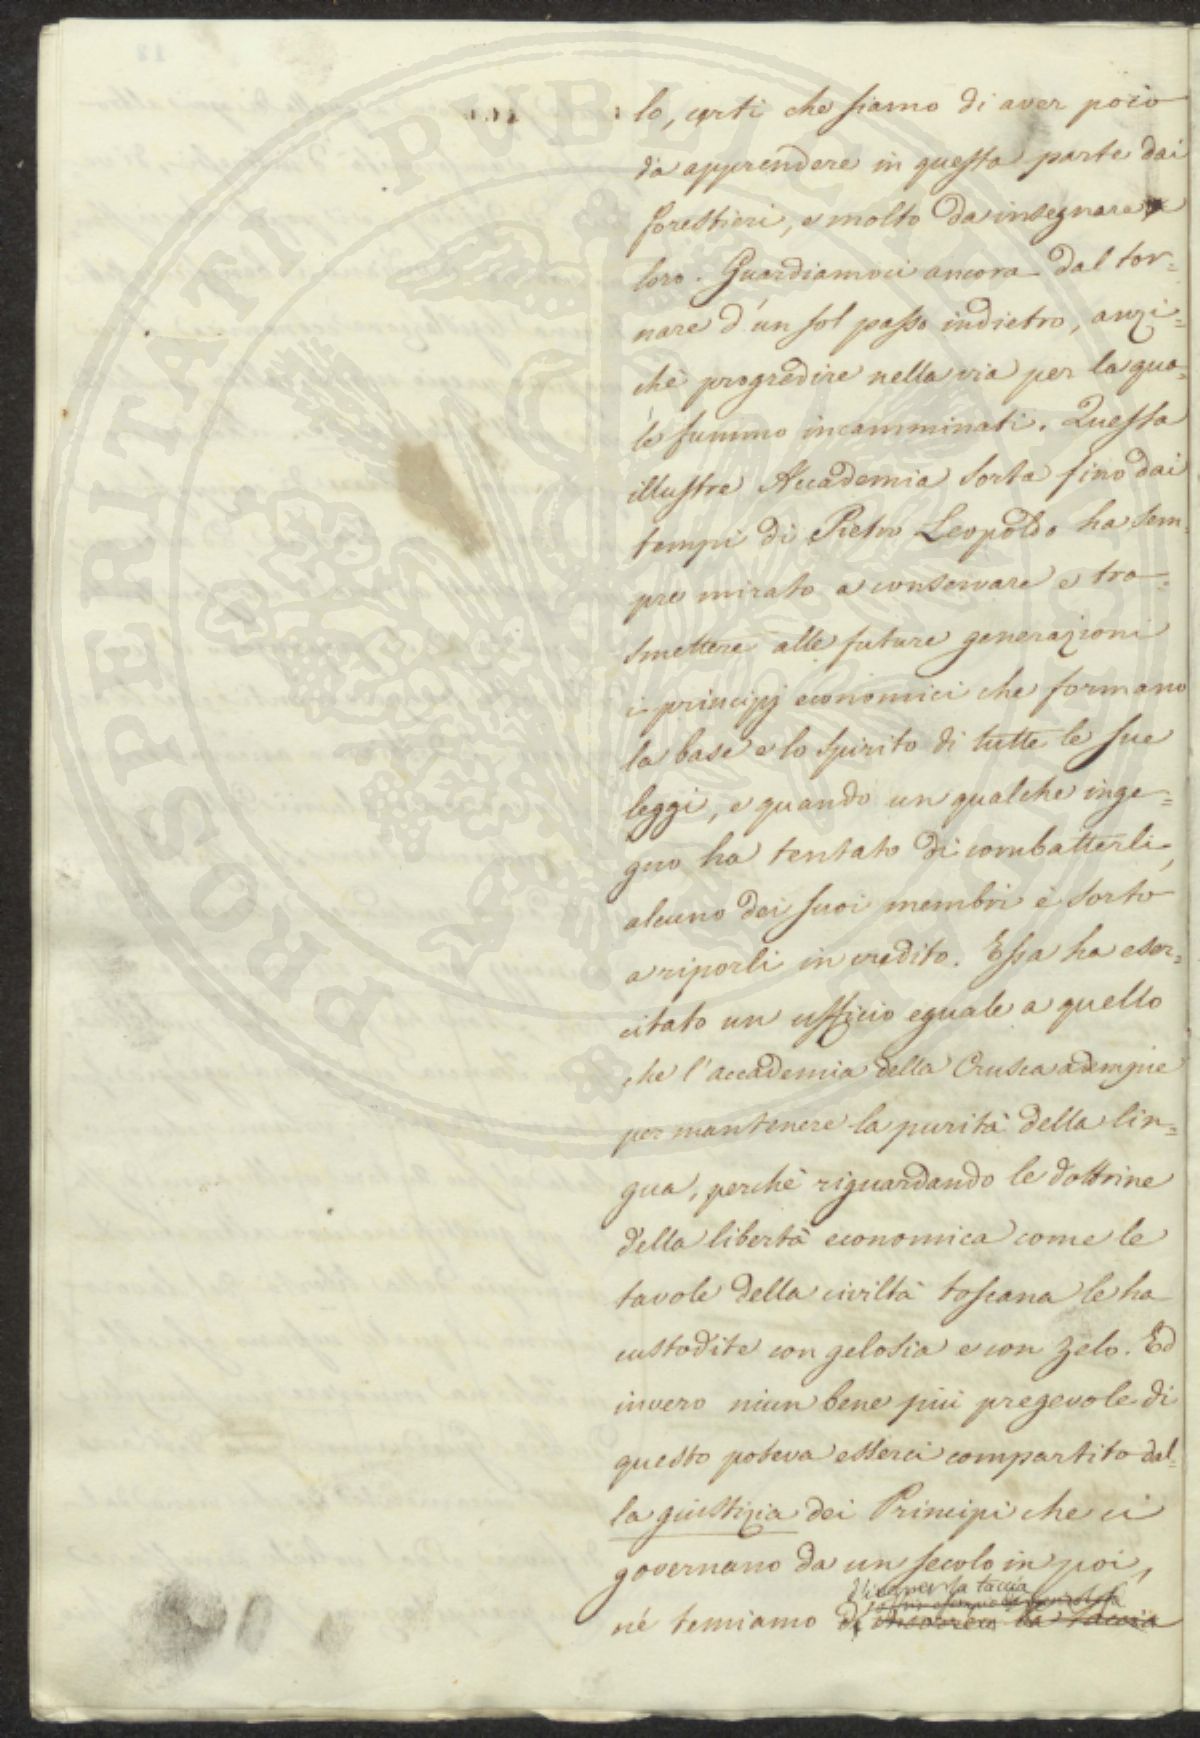 lo, certi che siamo di aver poco
da apprendere in questa parte dai
forestieri, e molto da insegnare a
loro. Guardiamoci ancora dal tor=
nare d'un sol passo indietro, anzi=
chè progredire nella via per la qua=
le fummo incamminati. Questa
illustre Accademia sorta fino dai
tempi di Pietro Leopoldo ha sem=
pre mirato a conservare e tra=
smettere alle future generazioni
i principj economici che formano
la base e lo spirito di tutte le sue
leggi, e quando un qualche inge=
gno ha tentato di combatterli,
alcuno dei suoi membri è sorto
a riporli in credito. Essa ha eser=
citato un ufficio eguale a quello
che l'accademia della Crusca adempie
per mantenere la purità della lin=
gua, perchè riguardando le dottrine
della libertà economica come le
tavole della civiltà toscana le ha
custodite con gelosia e con zelo. Ed
invero niun bene più pregevole di
questo poteva esserci compartito dal=
la giustizia dei Principi che ci
governano da un secolo in poi,
la taccia
né temiamo di incorrere la taccia
PROSPERITATI PUBLICAE